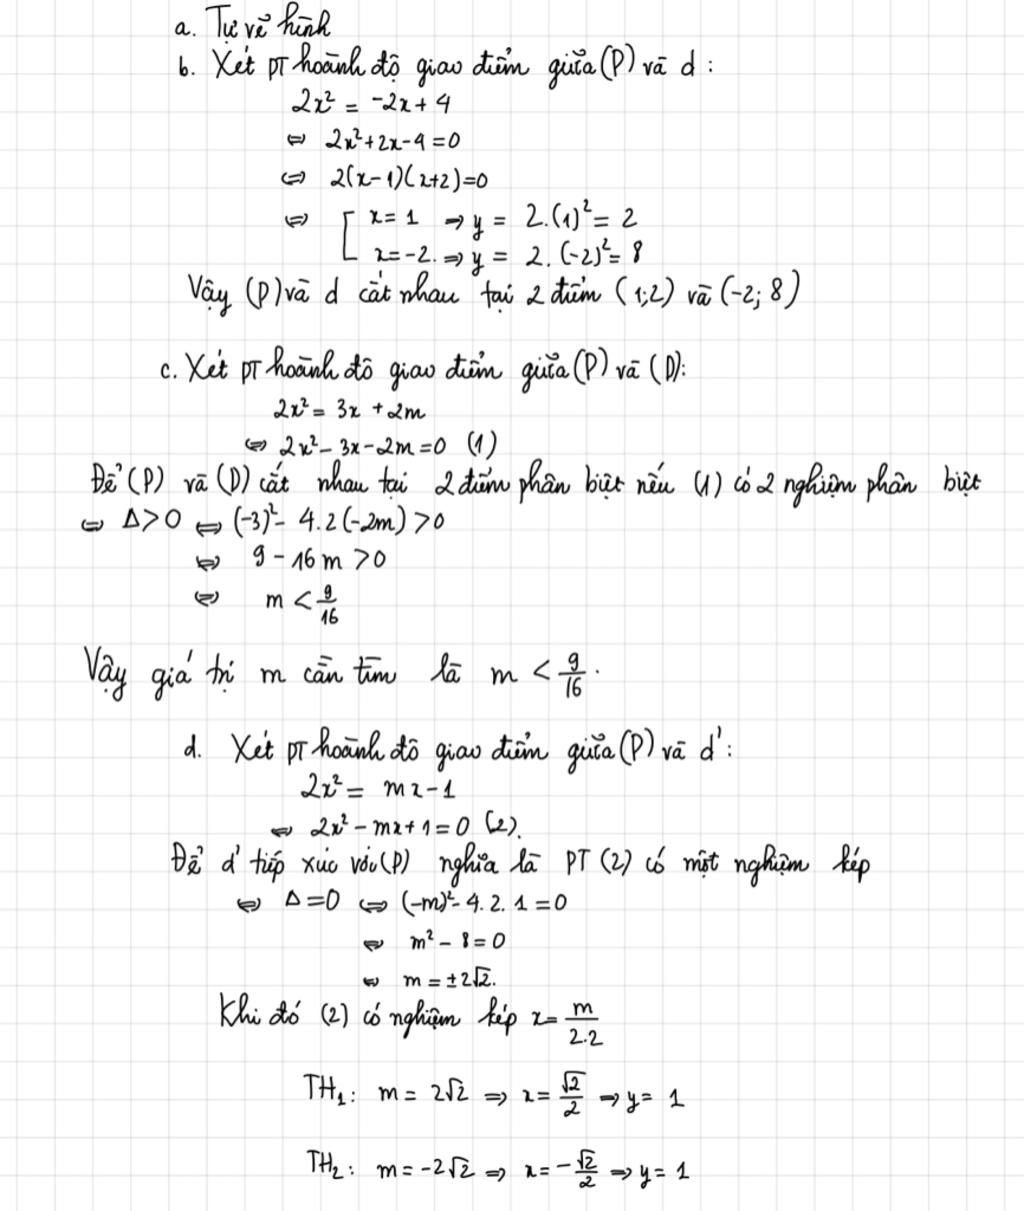 a. Tự vẽ hình
b. Xét PT hoành độ giao điểm giữa (P) và d :
2x² = -2x + 4
⇔ 2x² + 2x - 4 = 0
⇔ 2(x-1)(x+2)=0
⇔ [ x = 1 ⇒ y = 2.(1)² = 2
x = -2. ⇒ y = 2.(-2)² = 8
Vậy (P) và d cắt nhau tại 2 điểm (1;2) và (-2; 8)
c. Xét PT hoành độ giao điểm giữa (P) và (D):
2x² = 3x + 2m
⇔ 2x² - 3x - 2m = 0 (1)
Để (P) và (D) cắt nhau tại 2 điểm phân biệt nếu (1) có 2 nghiệm phân biệt
⇔ Δ > 0 ⇔ (-3)² - 4.2(-2m) > 0
⇔ 9 - 16m > 0
⇔ m < 9/16
Vậy giá trị m cần tìm là m < 9/16.
d. Xét PT hoành độ giao điểm giữa (P) và d' :
2x² = mx - 1
⇔ 2x² - mx + 1 = 0 (2).
Để d' tiếp xúc với (P) nghĩa là PT (2) có một nghiệm kép
⇔ Δ = 0 ⇔ (-m)² - 4.2.1 = 0
⇔ m² - 8 = 0
⇔ m = ±2√2.
Khi đó (2) có nghiệm kép x = m/2.2
TH₁ : m = 2√2 ⇒ x = √2/2 ⇒ y = 1
TH₂ : m = -2√2 ⇒ x = -√2/2 ⇒ y = 1